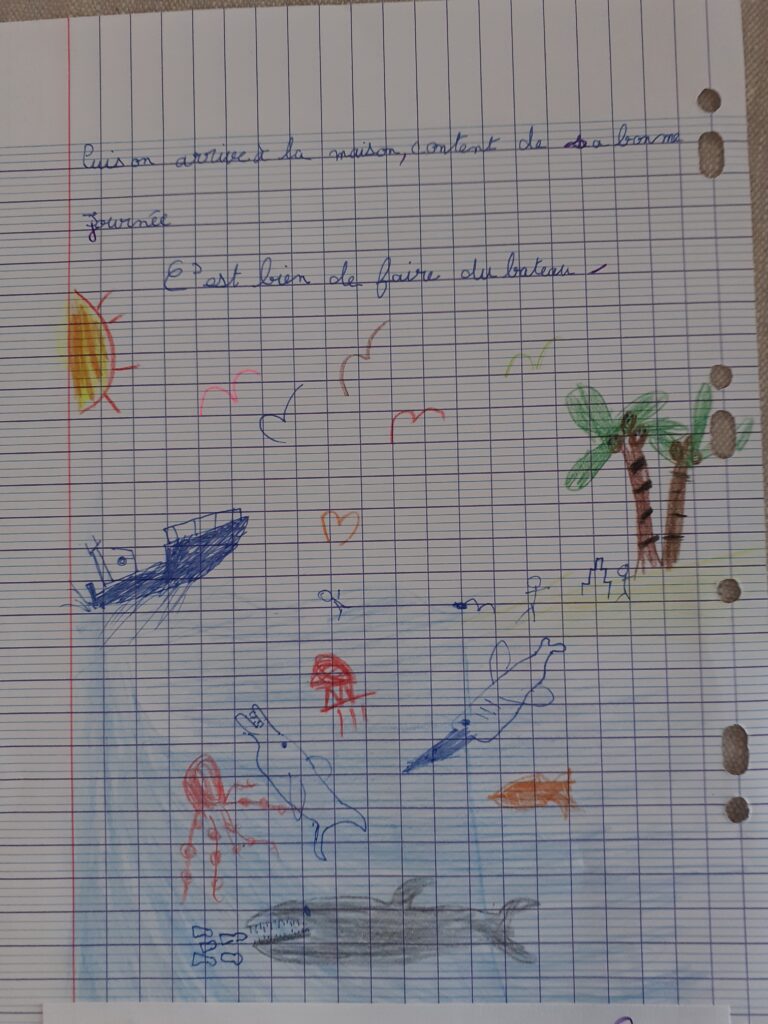 Puis on arrive à la maison, content de sa bonne
journée
C'est bien de faire du bateau.